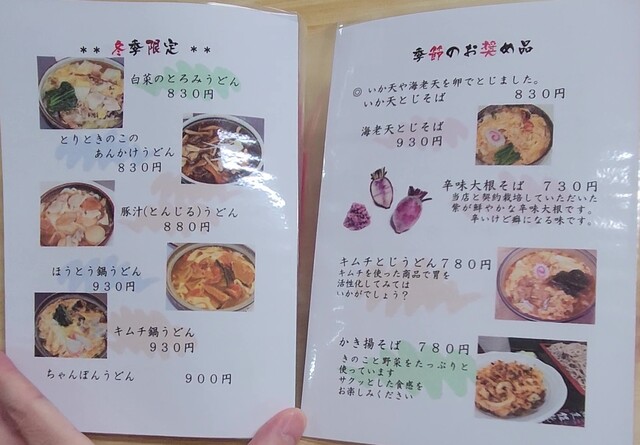 ** 冬季限定 **
白菜のとろみうどん
830円
とりときのこの
あんかけうどん
830円
豚汁(とんじる)うどん
880円
ほうとう鍋うどん
930円
キムチ鍋うどん
930円
ちゃんぽんうどん 900円
季節のお奨め品
◎ いか天や海老天を卵でとじました。
いか天とじそば 830円
海老天とじそば
930円
辛味大根そば 730円
当店と契約栽培していただいた
紫が鮮やかな辛味大根です。
辛いけど癖になる味です。
キムチとじうどん780円
キムチを使った商品で胃を
活性化してみては
いかがでしょう?
かき揚そば 780円
きのこと野菜をたっぷりと
使っています
サクッとした食感を
お楽しみください